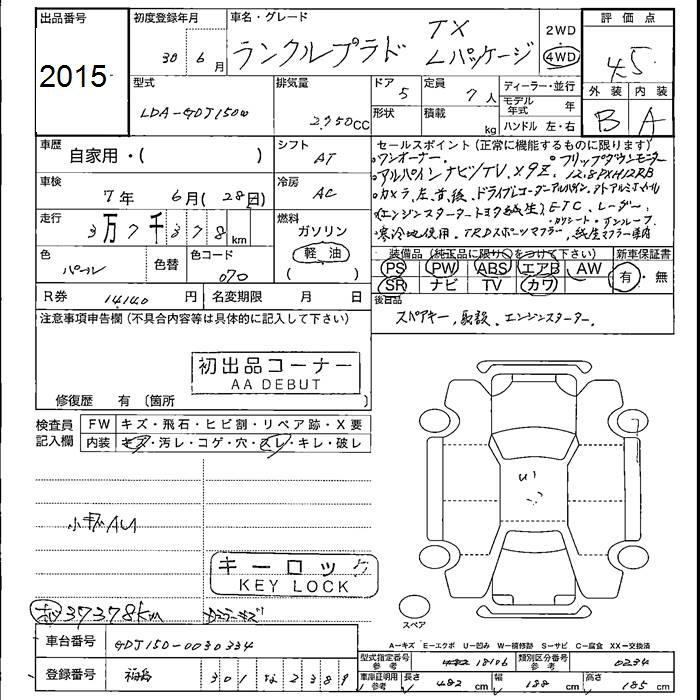 出品番号
2015
初度登録年月
30年 6月
車名・グレード
ランクルプラド TX Lパッケージ
2WD
4WD
評価点
4.5
外装 内装
B A
型式
LDA-GDJ150W
排気量
2,750CC
ドア
5
形状
定員
7人
積載
kg
ディーラー・並行
モデル年式 年
ハンドル 左・右
車歴
自家用・( )
シフト
AT
車検
7年 6月(28日)
冷房
AC
走行
3万7千378km
燃料
ガソリン
軽油
( )
色
パール
色替
色コード
070
R券 14140円
名変期限 月 日
セールスポイント (正常に機能するものに限ります)
・ワンオーナー. ・フリップダウンモニター
・アルパインナビ/TV.X9Z. 12.8PXH12RB
・カメラ、左、前、後、ドライブレコーダーアルパイン,
(エンジンスタータートヨタ純正).ETC、レーダー,
・寒冷地使用. TRDスポーツマフラー,純正マフラー車積
装備品 (純正品に限り○をつけて下さい)
PS PW ABS エアB AW
SR ナビ TV カワ
新車保証書
有・無
後日品
スペアキー,取説、エンジンスターター,
注意事項申告欄 (不具合内容等は具体的に記入して下さい)
初出品コーナー
AA DEBUT
修復歴 有 〔箇所 〕
検査員記入欄
FW キズ・飛石・ヒビ割・リペア跡・X要
内装 キズ・汚レ・コゲ・穴・スレ・キレ・破レ
小キズAU
キーロック
KEY LOCK
37378km
スペア
A=キズ E=エクボ U=凹み W=補修跡 S=サビ C=腐食 XX=交換済
車台番号 GDJ150-0030334
登録番号 福島 301 な 2389
型式指定番号 参考 18106
類別区分番号 参考 0234
車庫証明用 参考 長さ 482cm 幅 188cm 高さ 185cm